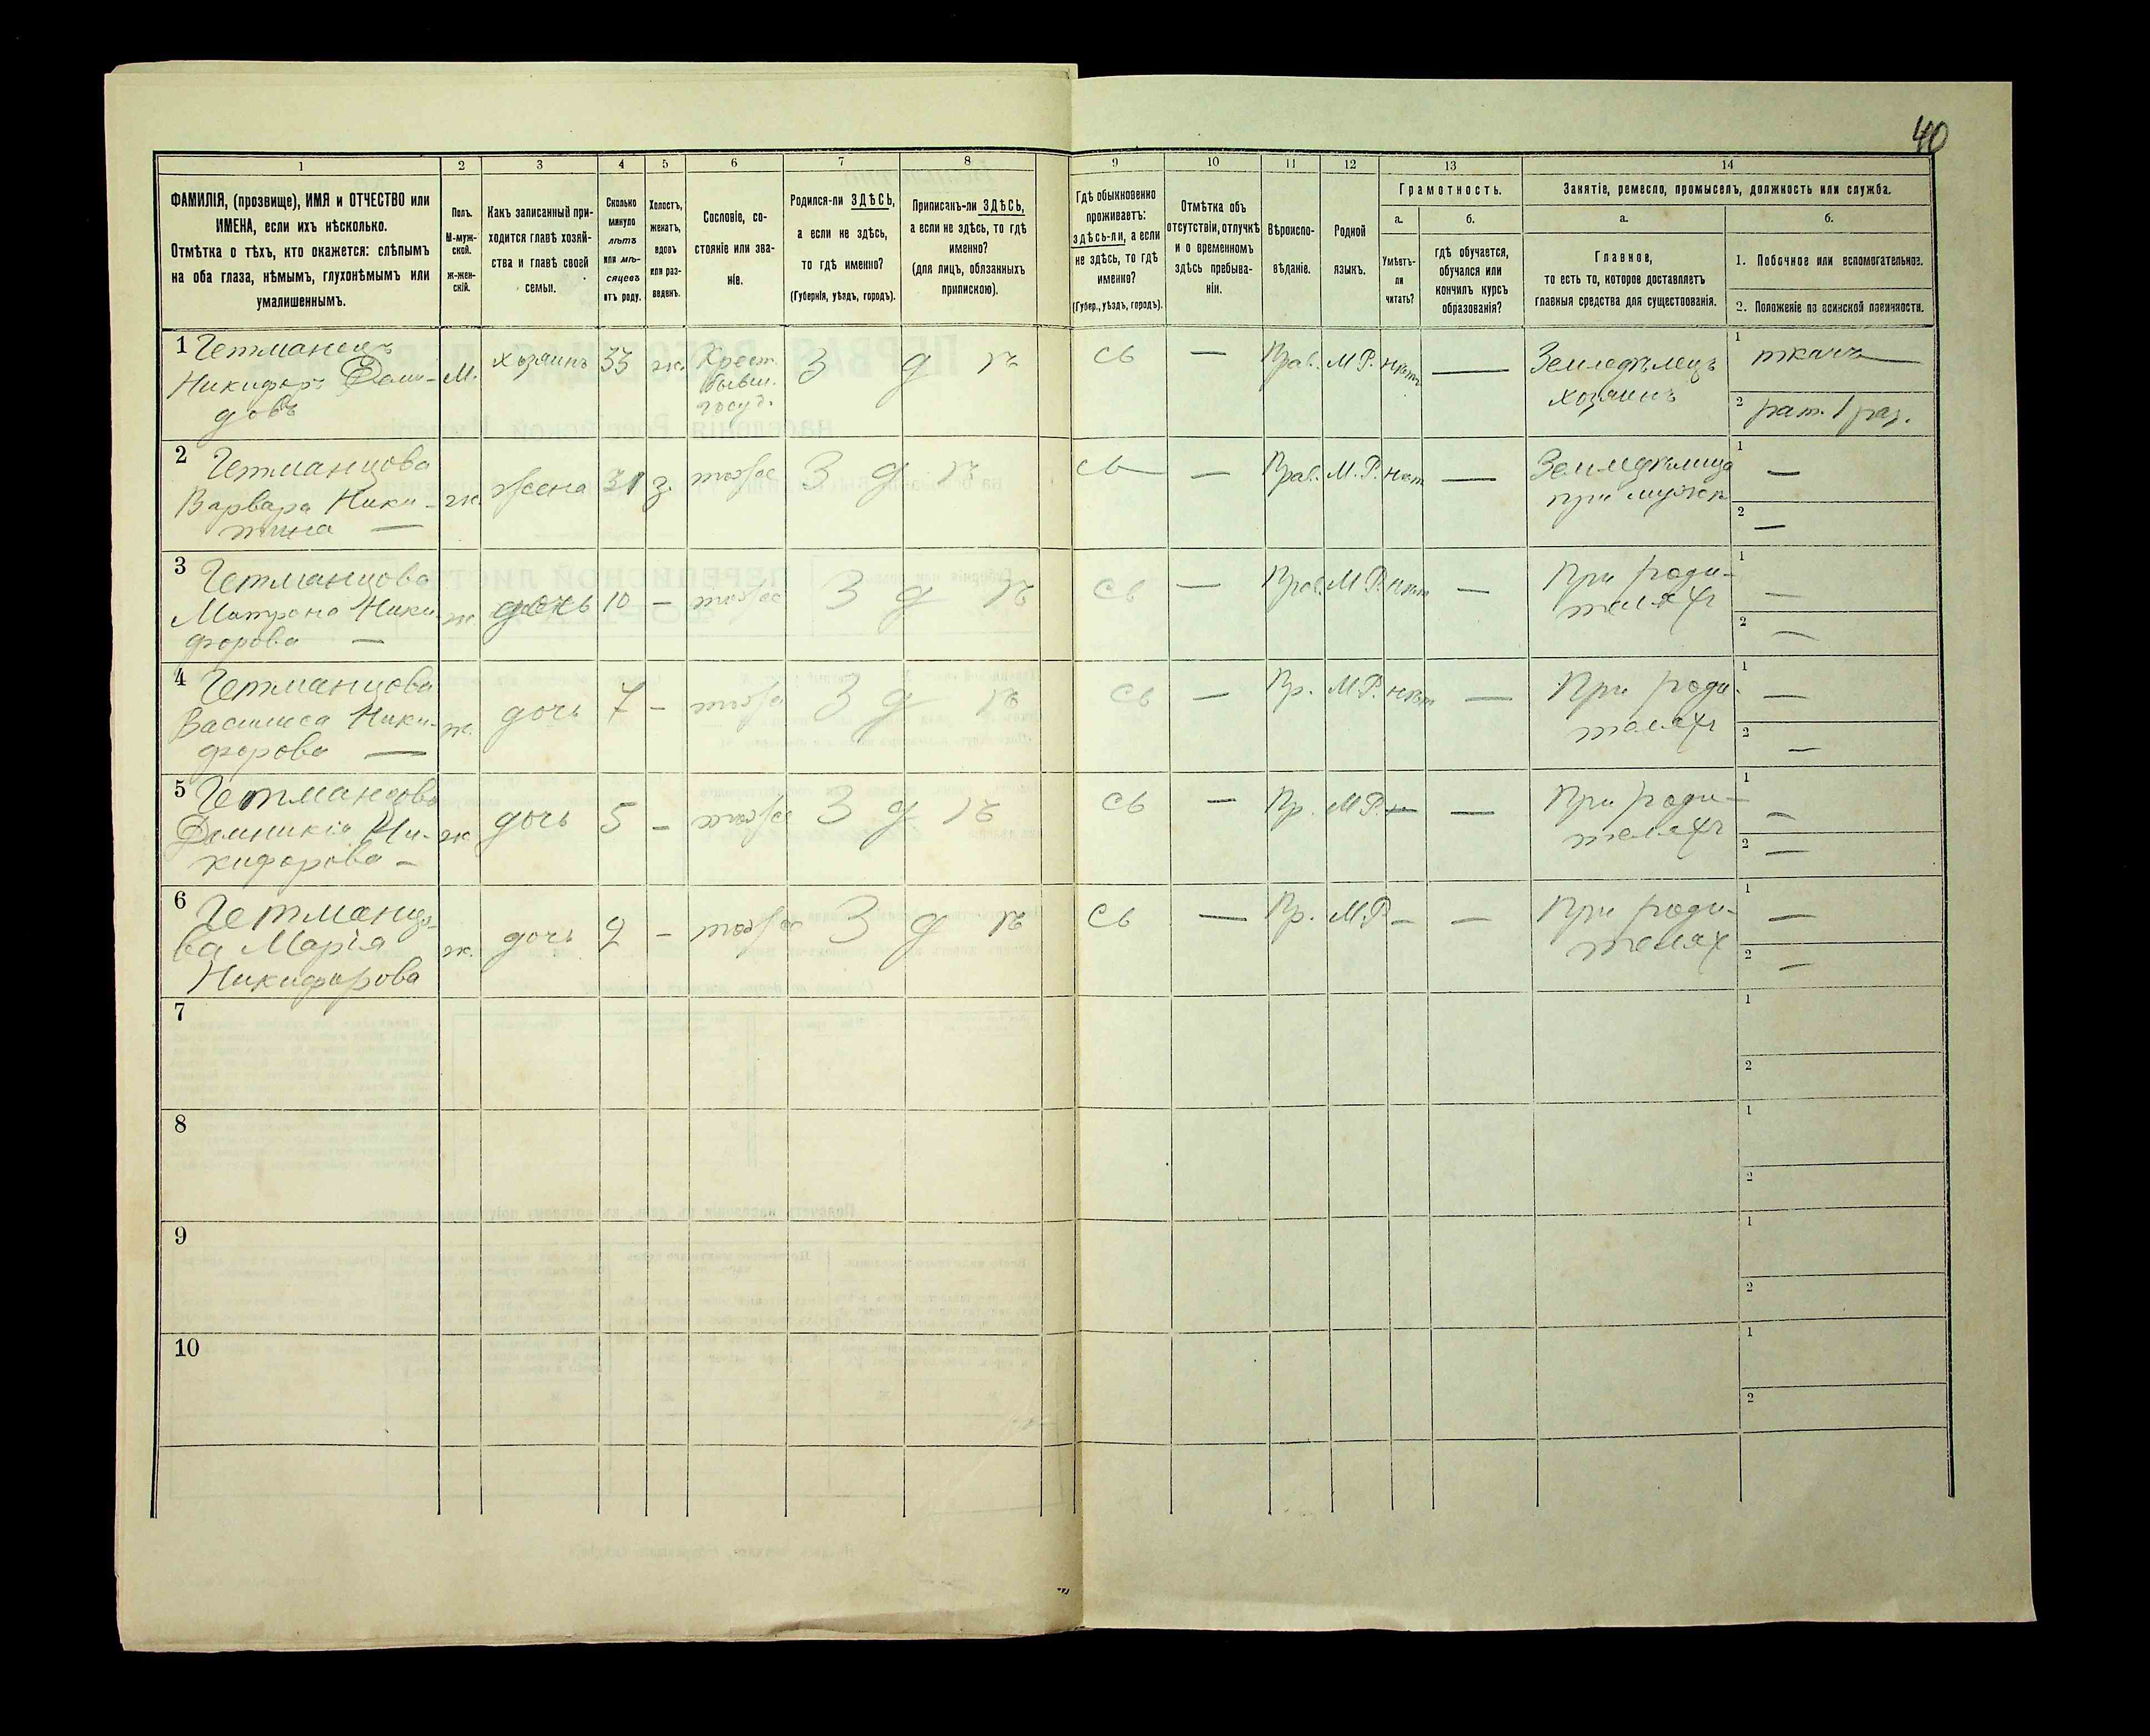 40
1 2 3 4 5 6 7 8 9 10 11 12 13 14
ФАМИЛІЯ, (прозвище), ИМЯ и ОТЧЕСТВО или
ИМЕНА, если ихъ нѣсколько.
Отмѣтка о тѣхъ, кто окажется: слѣпымъ
на оба глаза, нѣмымъ, глухонѣмымъ или
умалишеннымъ.
Полъ.
М-муж-
ской.
ж-жен-
скій.
Какъ записанный при-
ходится главѣ хозяй-
ства и главѣ своей
семьи.
Сколько
минуло
лѣтъ
или мѣ-
сяцевъ
отъ роду.
Холостъ,
женатъ,
вдовъ
или раз-
веденъ.
Сословіе, со-
стояніе или зва-
ніе.
Родился-ли ЗДѢСЬ,
а если не здѣсь,
то гдѣ именно?
(Губернія, уѣздъ, городъ).
Приписанъ-ли ЗДѢСЬ,
а если не здѣсь, то гдѣ
именно?
(для лицъ, обязанныхъ
припискою).
Гдѣ обыкновенно
проживаетъ:
здѣсь-ли, а если
не здѣсь, то гдѣ
именно?
(Губер., уѣздъ, городъ).
Отмѣтка объ
отсутствіи, отлучкѣ
и о временномъ
здѣсь пребыва-
ніи.
Вѣроиспо-
вѣданіе.
Родной
языкъ.
Грамотность.
а.
Умѣетъ-
ли
читать?
б.
гдѣ обучается,
обучался или
кончилъ курсъ
образованія?
Занятіе, ремесло, промыселъ, должность или служба.
а.
Главное,
то есть то, которое доставляетъ
главныя средства для существованія.
б.
1. Побочное или вспомогательное.
2. Положеніе по воинской повинности.
1 Гетманецъ
Никифоръ Деми-
довъ
М.
хозяинъ
33
ж.
Крест.
бывш.
госуд.
З д ѣ с ь
—
Прав.
М.Р.
нѣтъ
—
Земледѣлецъ
хозяинъ
1 ткачъ —
2 рат. 1 раз.
2 Гетманцова
Варвара Ники-
тина —
ж.
жена
31
з.
тоже
З д ѣ с ь
—
Прав.
М.Р.
нѣт
—
Земледѣлица
при мужѣ
1 —
2 —
3 Гетманцова
Матрона Ники-
форова —
ж.
дочь
10
—
тоже
З д ѣ с ь
—
Прав.
М.Р.
нѣт
—
При роди-
теляхъ
1 —
2 —
4 Гетманцова
Василиса Ники-
форова —
ж.
дочь
7
—
тоже
З д ѣ с ь
—
Пр.
М.Р.
нѣт
—
При роди-
теляхъ
1 —
2 —
5 Гетманцова
Домникія Ни-
кифорова —
ж
дочь
5
—
тоже
З д ѣ с ь
—
Пр.
М.Р.
—
—
При роди-
теляхъ
1 —
2 —
6 Гетманцо-
ва Марія
Никифорова
ж.
дочь
2
—
тоже
З д ѣ с ь
—
Пр.
М.Р.
—
—
При роди-
телях
1 —
2 —
7
1
2
8
1
2
9
1
2
10
1
2